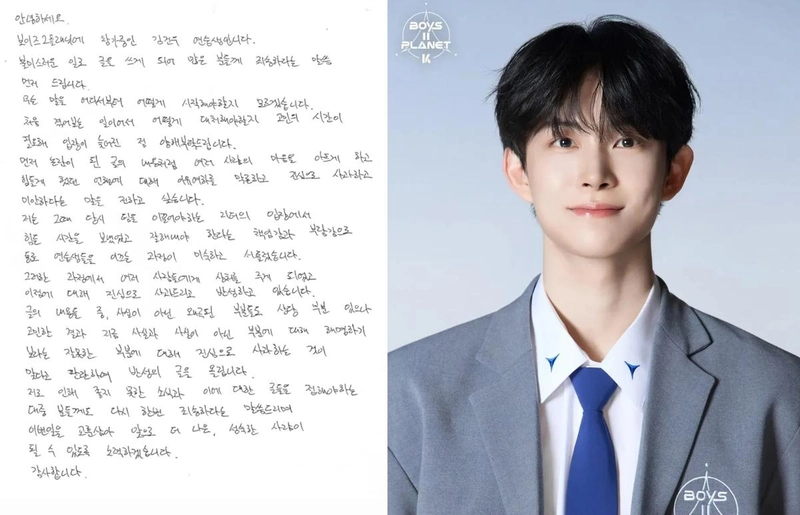 안녕하세요.
보이즈2플래닛에 참가중인 김건우 연습생입니다.
불미스러운 일로 글을 쓰게 되어 많은 분들께 죄송하다는 말씀
먼저 드립니다.
무슨 말을 어디서부터 어떻게 시작해야할지 모르겠습니다.
처음 겪어보는 일이어서 어떻게 대처해야할지 고민의 시간이
필요해 입장이 늦어진 점 양해부탁드립니다.
먼저 논란이 된 글의 내용처럼 여러 사람의 마음을 아프게 하고
힘들게 했던 언행에 대해 이유여하를 막론하고 진심으로 사과하고
미안하다는 말을 전하고 싶습니다.
저는 그때 당시 팀을 이끌어야하는 리더의 입장에서
힘든 시간을 보냈었고 잘해내야 한다는 책임감과 부담감으로
동료 연습생들을 이끄는 과정이 미숙하고 서툴렀습니다.
그러한 과정에서 여러 사람들에게 상처를 주게 되었고
이점에 대해 진심으로 사과드리고 반성하고 있습니다.
글의 내용들 중, 사실이 아닌 왜곡된 부분들도 상당 부분 있으나
고민한 결과 지금 사실과 사실이 아닌 부분에 대해 해명하기
보다는 잘못한 부분에 대해 진심으로 사과하는 것이
맞다고 판단하여 반성의 글을 올립니다.
저로 인해 좋지 못한 소식과 이에 대한 글들을 접해야하는
대중 분들께도 다시 한번 죄송하다는 말씀드리며
이번일을 교훈삼아 앞으로 더 나은, 성숙한 사람이
될 수 있도록 노력하겠습니다.
감사합니다.
BOYS
II
PLANET
K
BOYS
II